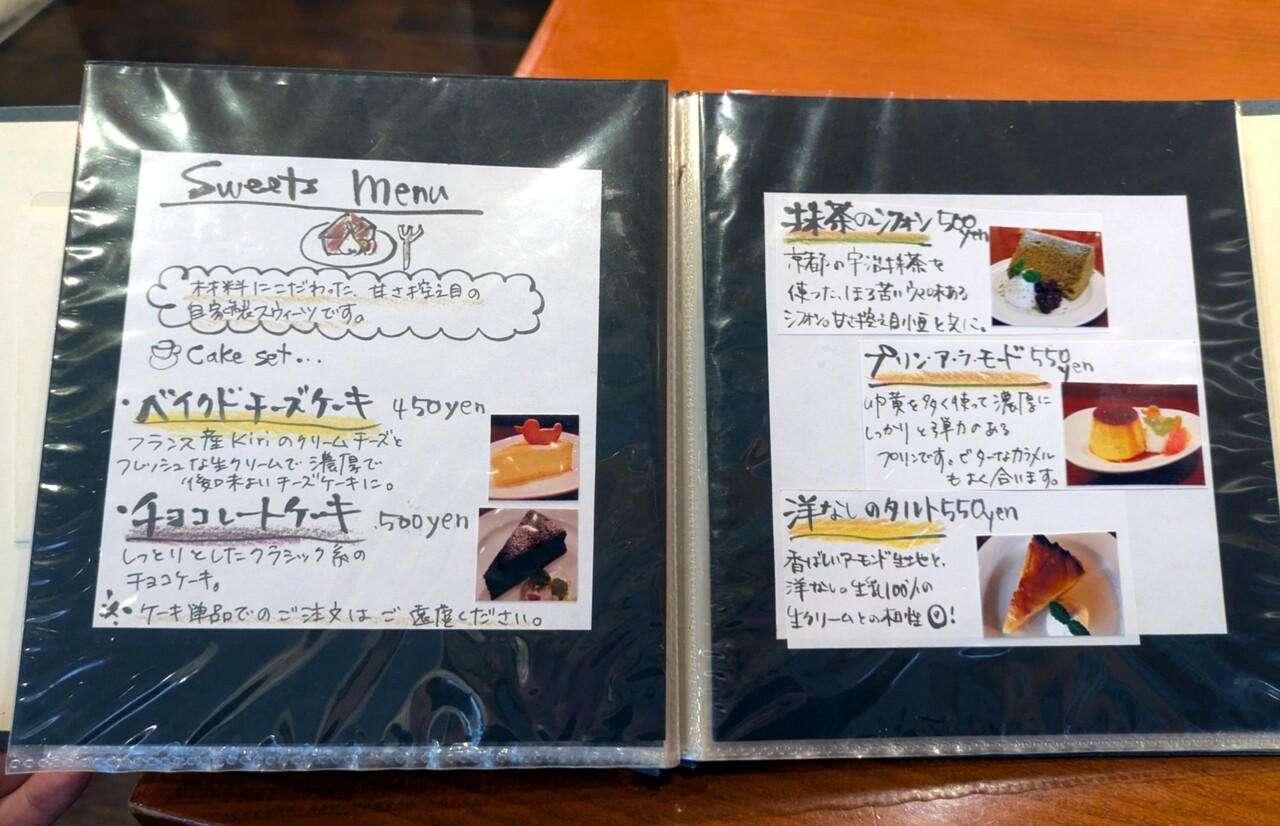 Sweets Menu
材料にこだわった、甘さ控え目の
自家製スウィーツです。
Cake set...
・ベイクドチーズケーキ 450yen
フランス産Kiriのクリームチーズと
フレッシュな生クリームで濃厚で
後味よいチーズケーキに。
・チョコレートケーキ 500yen
しっとりとしたクラシック系の
チョコケーキ。
※ケーキ単品でのご注文はご遠慮ください。
抹茶のシフォン 500yen
京都の宇治抹茶を
使った、ほろ苦い风味ある
シフォン。甘さ控え目小豆と共に。
プリン・ア・ラ・モード 550yen
卵黄を多く使って濃厚に
しっかりと弾力のある
プリンです。ビターなカラメル
もよく合います。
洋なしのタルト 550yen
香ばしいアーモンド生地と、
洋なし。生乳100%の
生クリームとの相性◎!